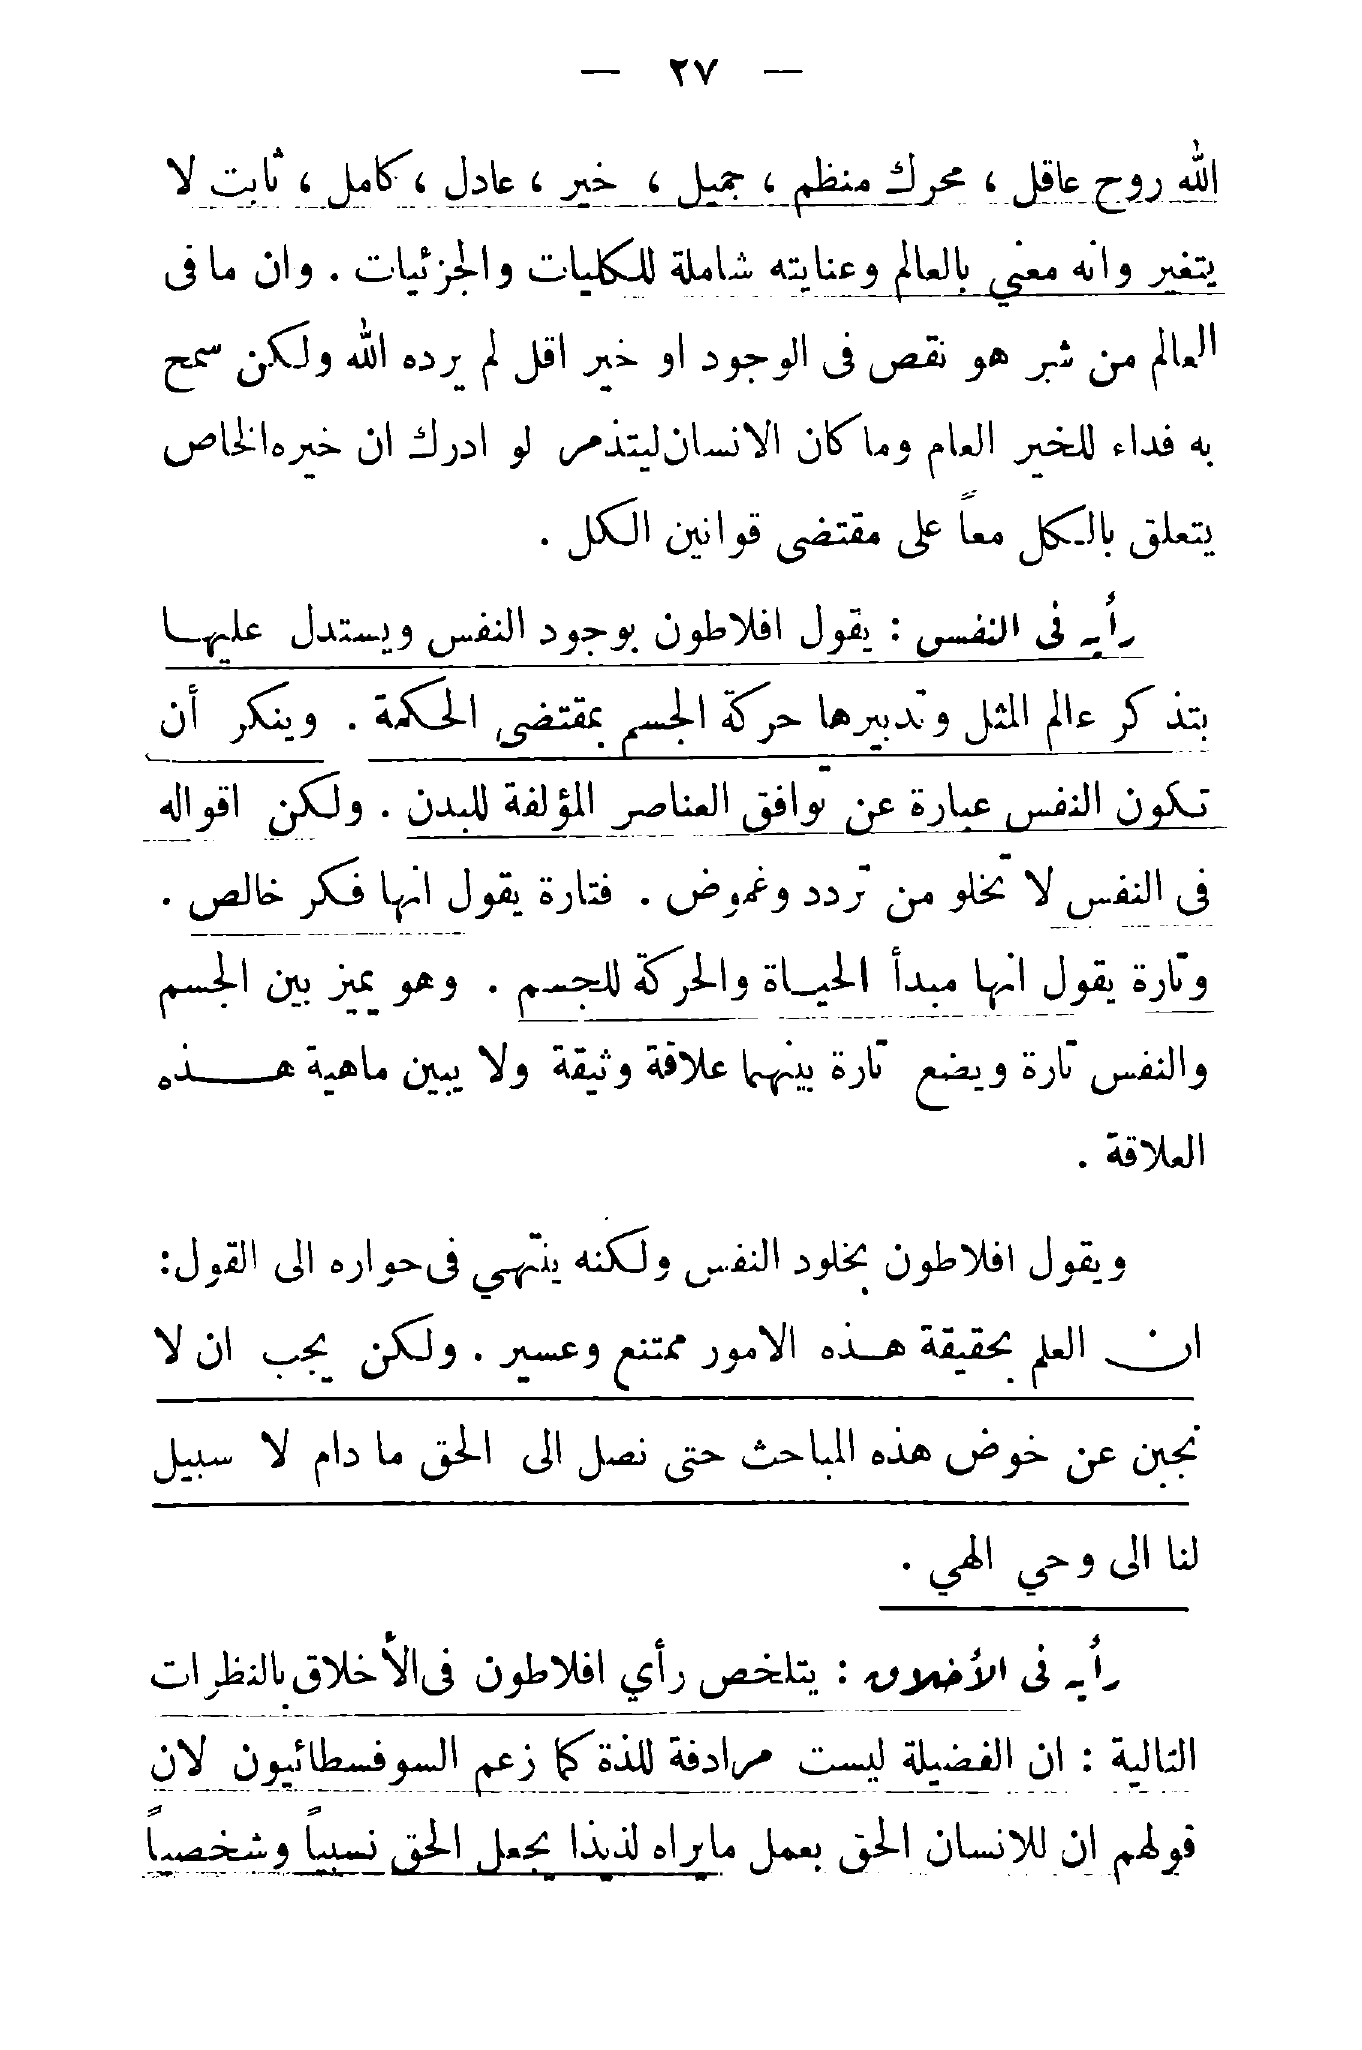 — ٢٧ —
الله روح عاقل ، محرك منظم ، جميل ، خير ، عادل ، كامل ، ثابت لا
يتغير وانه معني بالعالم وعنايته شاملة للكليات والجزئيات . وان ما فى
العالم من شر هو نقص فى الوجود او خير اقل لم يرده الله ولكن سمح
به فداء للخير العام وما كان الانسان ليتذمر لو ادرك ان خيره الخاص
يتعلق بالكل معاً على مقتضى قوانين الكل .
رأيه فى النفس : يقول افلاطون بوجود النفس ويستدل عليها
بتذكر عالم المثل وتدبيرها حركة الجسم بمقتضى الحكمة . وينكر أن
تكون النفس عبارة عن توافق العناصر المؤلفة للبدن . ولكن اقواله
فى النفس لا تخلو من تردد وغموض . فتارة يقول انها فكر خالص .
وتارة يقول انها مبدأ الحياة والحركة للجسم . وهو يميز بين الجسم
والنفس تارة ويضع تارة بينهما علاقة وثيقة ولا يبين ماهية هذه
العلاقة .
ويقول افلاطون بخلود النفس ولكنه ينتهي فى حواره الى القول:
ان العلم بحقيقة هذه الامور ممتنع وعسير . ولكن يجب ان لا
نجبن عن خوض هذه المباحث حتى نصل الى الحق ما دام لا سبيل
لنا الى وحي الهي .
رأيه فى الأخلاق : يتلخص رأي افلاطون فى الأخلاق بالنظرات
التالية : ان الفضيلة ليست مرادفة للذة كما زعم السوفسطائيون لان
قولهم ان للانسان الحق بعمل ما يراه لذيذا يجعل الحق نسبياً وشخصياً